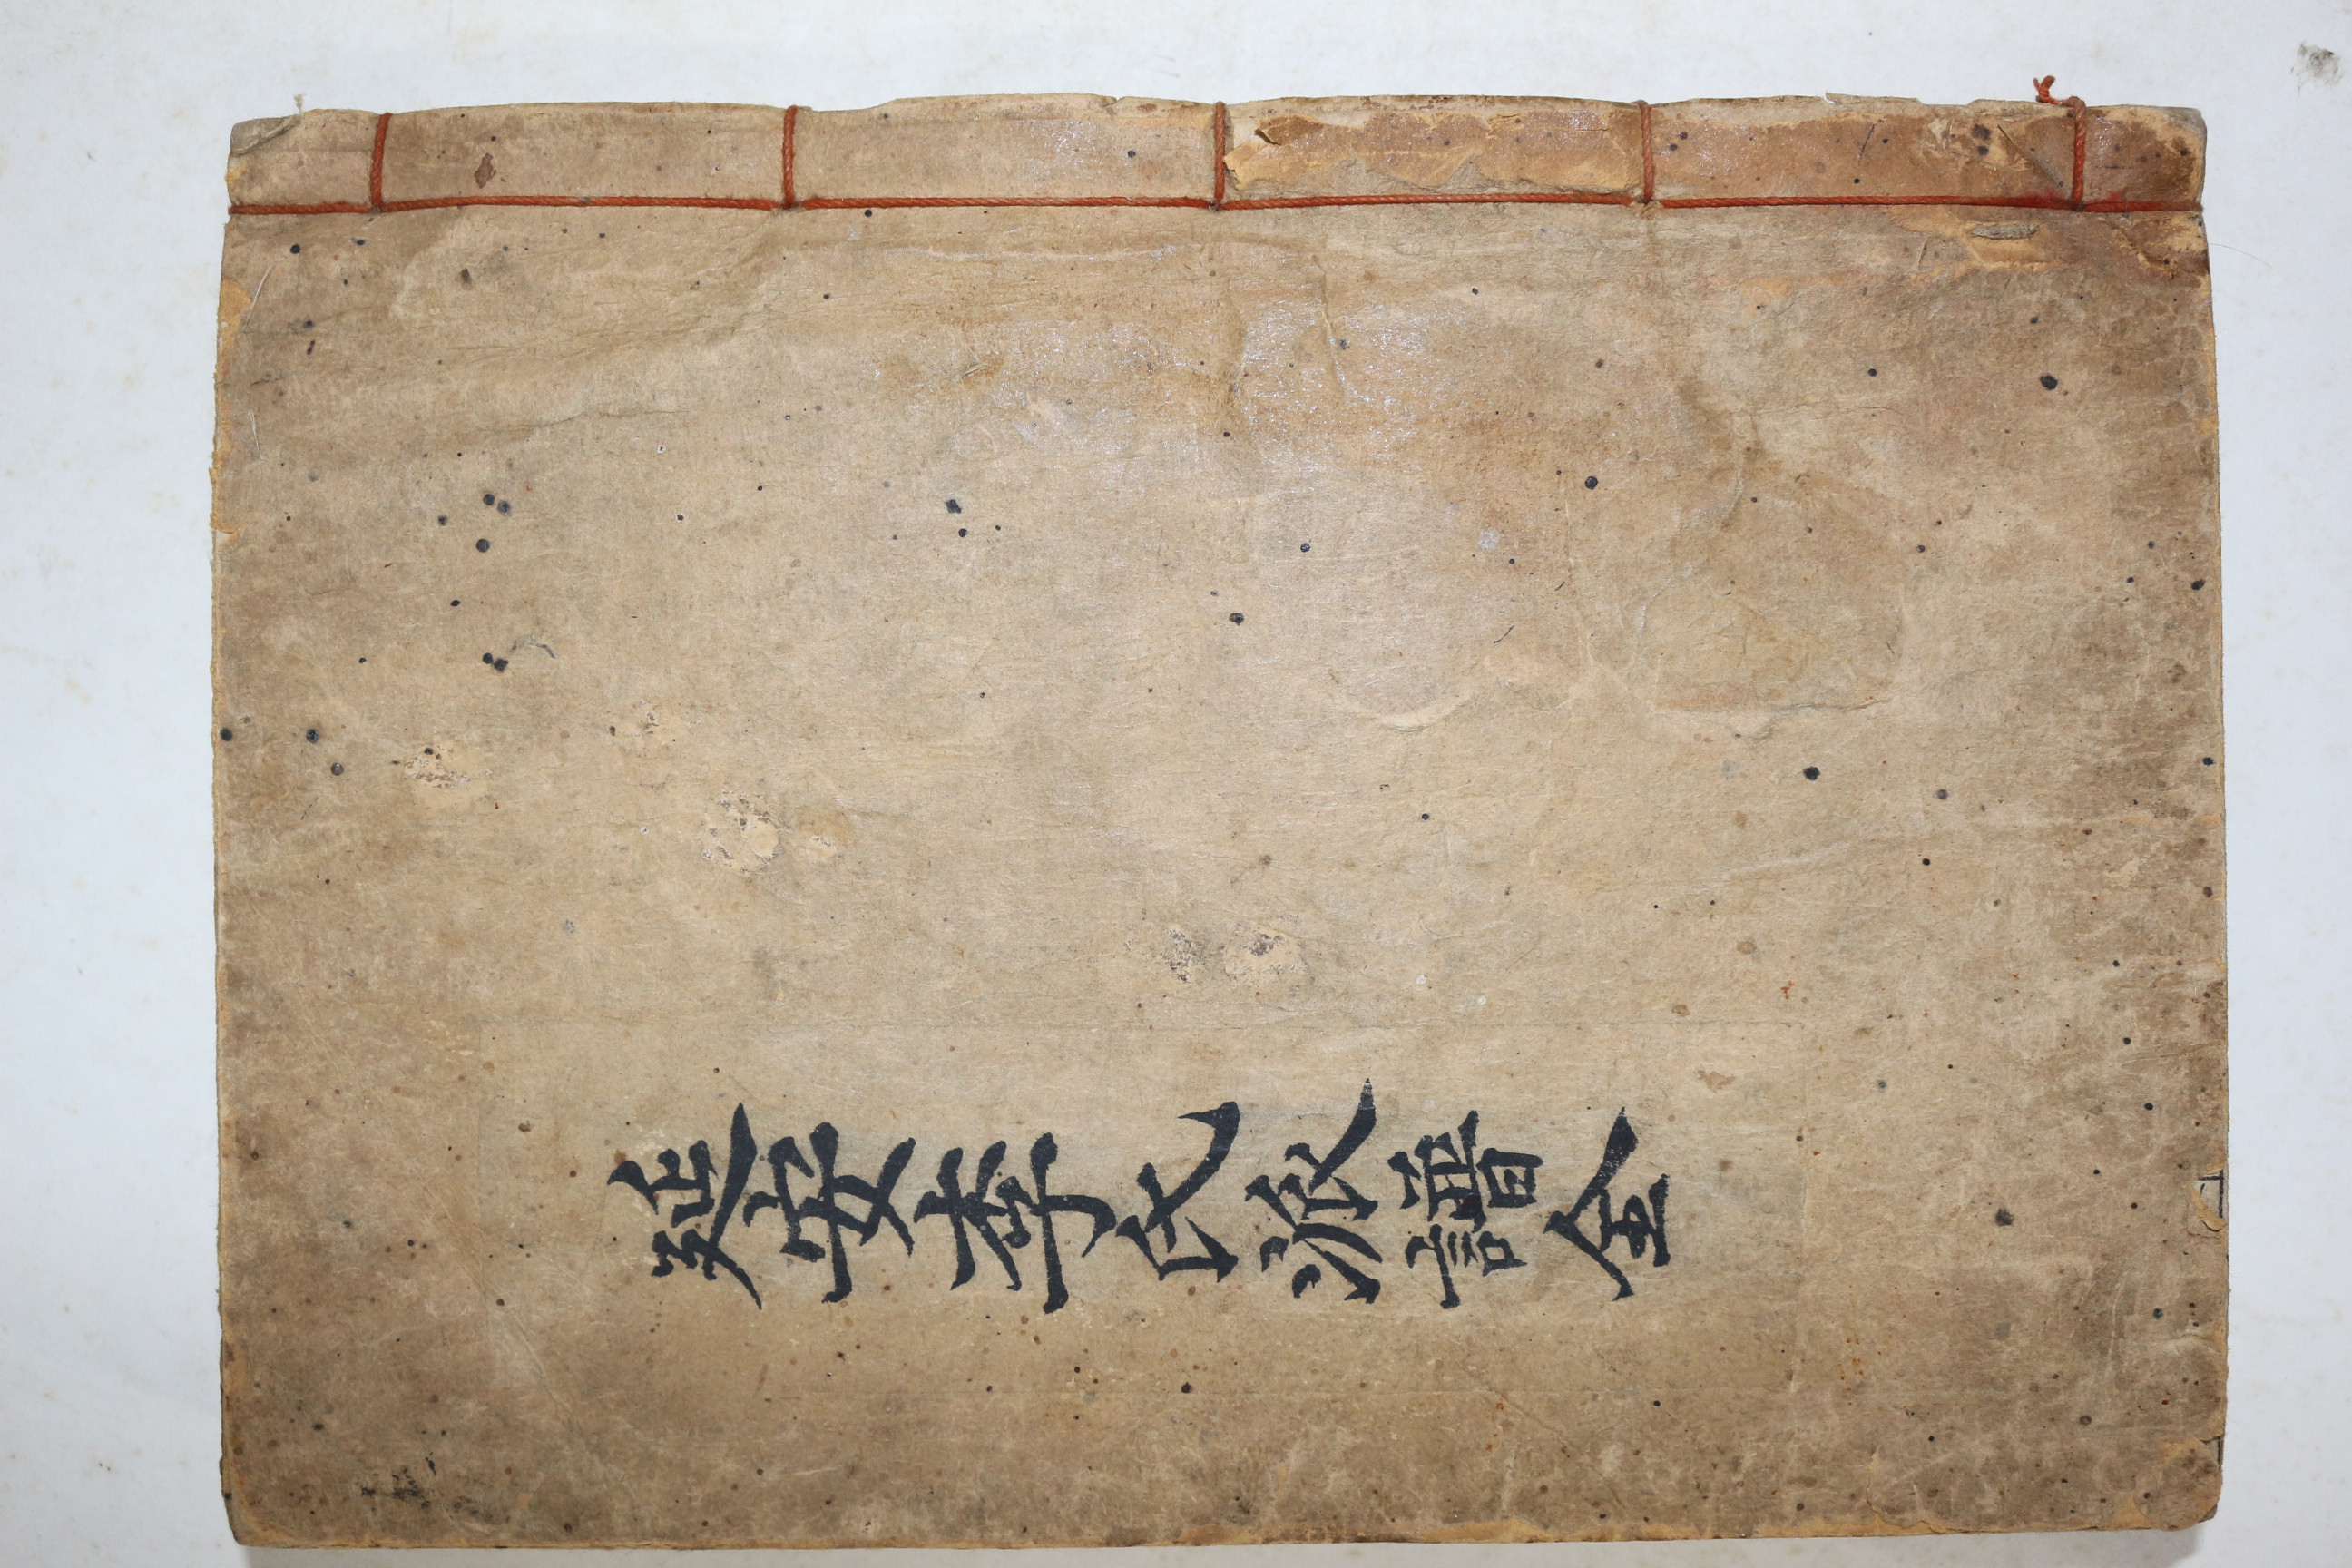 延安李氏派譜全